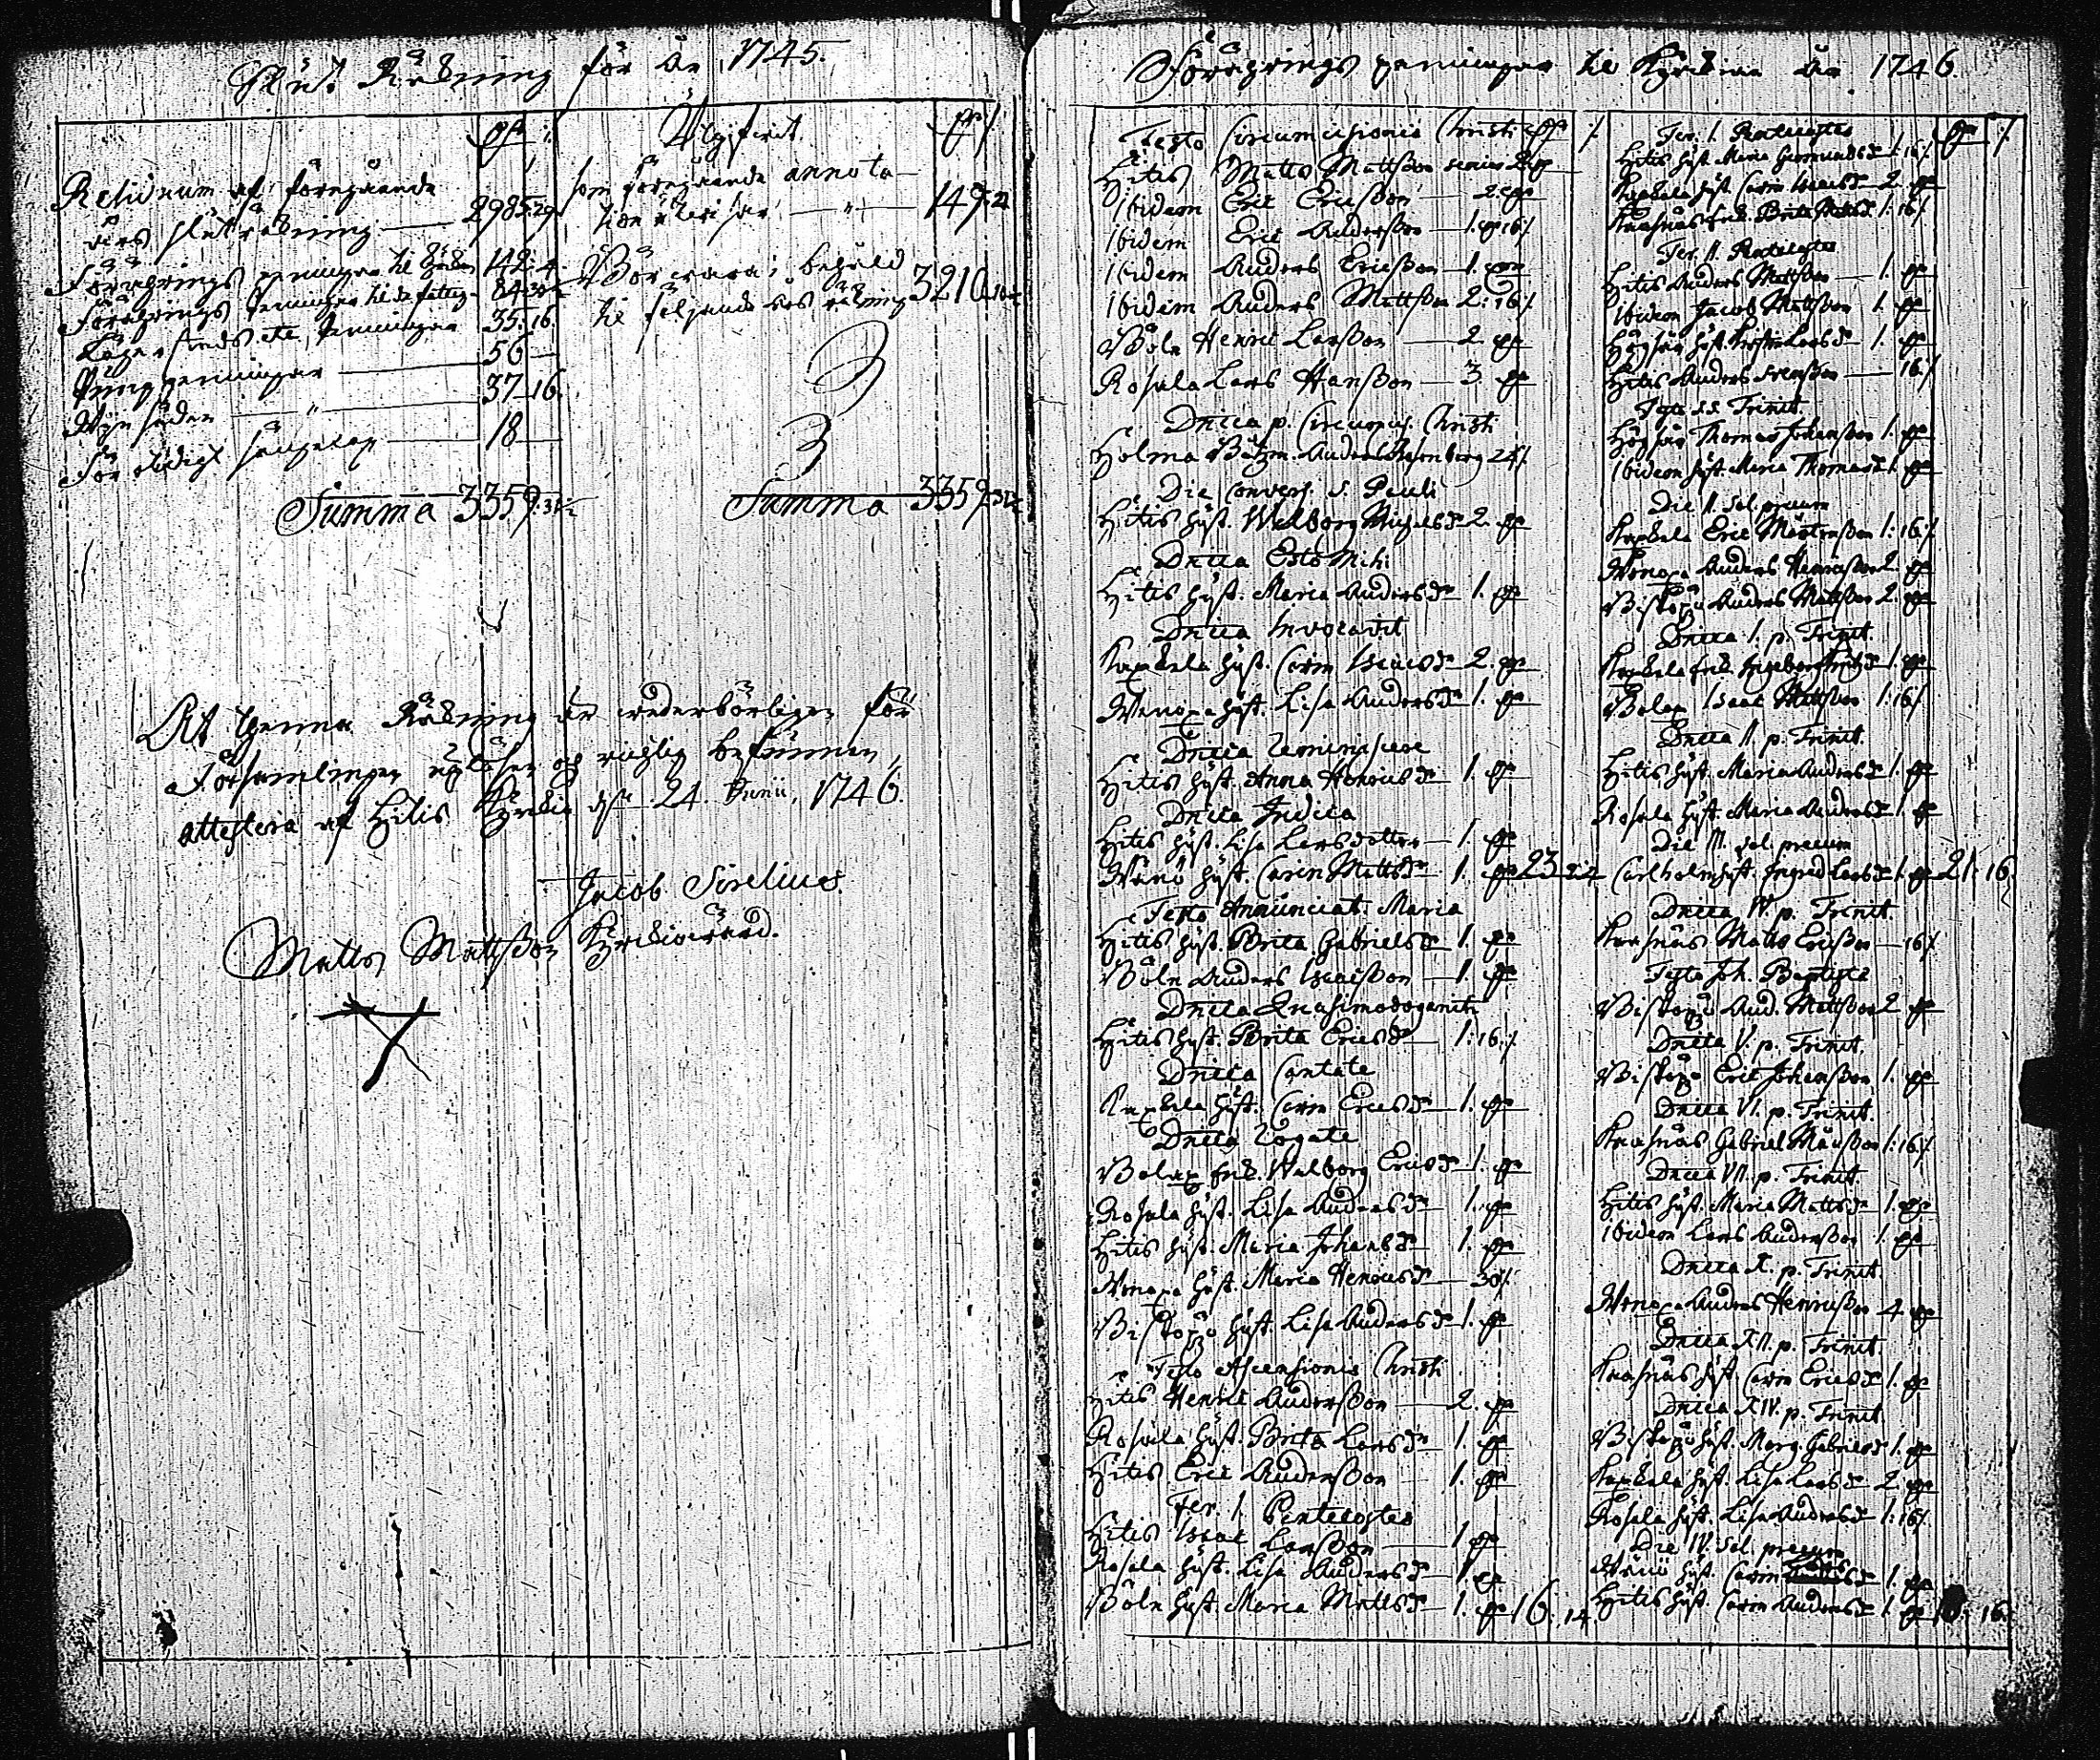 Slut Räkning för År 1745.
Residuum af föregående
års slut räkning — 2985:29
Förährings penningar til Kyrkan 142:4
Förährings penningar til de fattige 84:
Läger stads etc. penningar 35:16
Pung penningar — 56 —
37:16.
18
Summa 3359:31½
Utgifterit.
som föregående annota-
tion utvisar — 149:21
Bör vara i behåld
til följande års räkning 3210:
Summa 3359:31½
At denna Räkning är wederbörligen för
Församlingen upläsen og richtig befunnen,
attestera af Hitis Kyrkia d. 24. Junii, 1746.
Jacob Sirelius.
Matts Mattsson Kyrkiowärd.
Förährings penningar til Kyrkian År 1746.
Festo Circumcisionis Christi
Hitis Matts Mattsson senior 2
Ibidem Eric Ericsson — 2
Ibidem Eric Andersson — 1. 16
Ibidem Anders Ericsson — 1.
Ibidem Anders Mattsson 2:16
Böle Henric Larsson — 2
Rosala Lars Hansson — 3
Dnica p. Circumcis. Christi
Holma Båtzm. Anders Rosenberg 24
Die Convers. S. Pauli
Hitis hust. Walborg Michelsdr 2
Dnica Esto Mihi
Hitis hust. Maria Andersdr 1.
Dnica Invocavit
Kaxkela hust. Carin Isacsdr 2.
Wenoxa hust. Lisa Andersdr 1.
Dnica Reminiscere
Hitis hust. Anna Henricsdr 1.
Dnica Judica
Hitis hust. Lisa Larsdotter — 1.
Wänö hust. Carin Mattsdr 1. 23:24
Festo Annunciat. Maria
Hitis hust. Brita Gabrielsdr 1.
Böle Anders Isacsson — 1.
Dnica Quasimodogeniti
Hitis hust. Brita Ericsdr 1:16
Dnica Cantate
Kaxkela hust. Carin Ericsdr 1.
Dnica Rogate
Bolax Enk. Walborg Ericsdr 1.
Rosala hust. Lisa Andersdr 1.
Hitis hust. Maria Johansdr 1.
Wenoxa hust. Maria Henricsdr 30
Biskopsö hust. Lisa Andersdr 1.
Festo Ascensionis Christi
Hitis Henric Andersson — 2.
Rosala hust. Brita Larsdr 1.
Hitis Eric Andersson 1.
Fer. I. Pentecostes
Hitis Isaac Larsson — 1
Rosala hust. Lisa Andersdr 1.
Böle hust. Maria Mattsdr 1. 16:14
Fer. I. Pentecostes
Hitis hust. Maria 1:16
Kaxkela hust. Carin Isacsdr 2
Kasnäs Enk. Brita Mattsdr 1:16
Fer. II. Pentecostes
Hitis Anders Mattsson — 1.
Ibidem Jacob Mattsson 1.
Högsår hust. Larsdr 1.
Hitis Anders Svensson — 16
Festo S.S. Trinit.
Högsår Thomas Johansson 1.
Ibidem hust. Maria Thomasdr 1.
Die I. sol. precum
Kaxkela Eric Mårtensson 1:16
Wenoxa Anders Henricsson 2
Biskopsö Anders Mattsson 2.
Dnica I. p. Trinit.
Kaxkela Enk. Ingeborg 1.
Bolax Isaac Mattsson 1:16
Dnica II p. Trinit.
Hitis hust. Maria Andersdr 1.
Rosala hust. Maria Andersdr 1.
Die III. sol. precum
Carlholm hust. Ingrid Larsdr 1. 21:16
Dnica IV. p. Trinit.
Kasnäs Matts Ericsson — 16
Festo Joh. Baptistæ
Biskopsö And. Mattsson 2
Dnica V. p. Trinit.
Biskopsö Eric Johansson 1.
Dnica VI. p. Trinit.
Kasnäs Gabriel Månsson 1:16
Dnica VII. p. Trinit.
Hitis hust. Maria Mattsdr 1.
Ibidem Lars Andersson 1.
Dnica X. p. Trinit.
Wenoxa Anders Henricsson 4
Dnica XII. p. Trinit.
Kasnäs hust. Carin Ericsdr 1.
Dnica XIV. p. Trinit.
Biskopsö hust. Marg. Gabrielsdr 1.
Kaxkela hust. Lisa Larsdr 2
Rosala hust. Lisa Andersdr 1:16
Die IV. sol. precum
Wänö hust. Carin 1.
Hitis hust. Carin Andersdr 1. 16.